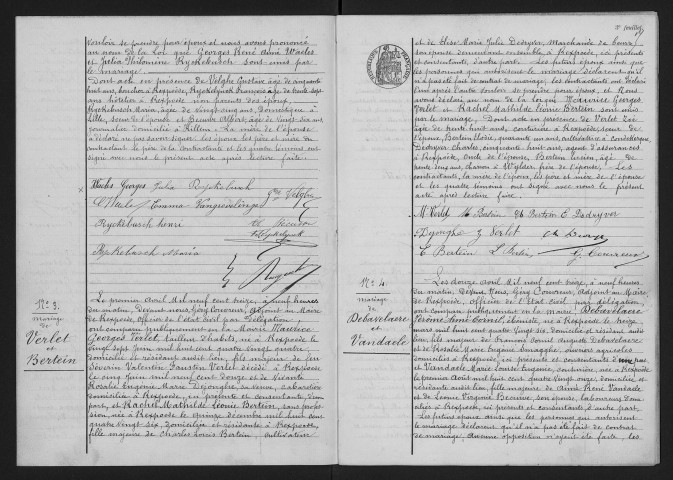 vouloir se prendre pour époux et nous avons prononcé
au nom de la Loi que Georges René Aimé Waeles
et Julia Philomène Ryckebusch sont unis par
le mariage.
Dont acte en présence de Velghe Gustave âgé de cinquante
huit ans, à Rexpoëde, âgé de trente sept
ans hôtelier à Rexpoëde non parent des époux,
Ryckebusch Maria, âgée de vingt cinq ans, domestique à
Lille, sœur de l'épouse et Albert, âgé de vingt six ans
journalier domicilié à Killem. La mère de l'époux
a déclaré ne pas savoir signer. Les époux, les père et mère du
contractant le père de la contractante et les quatre témoins ont
signé avec nous le présent acte après lecture faite.
Waeles Georges Julia Ryckebusch
Emma Vangrevelinge
Ryckebusch henri
Ryckebusch Maria
Nº 3.
mariage
de
Verlet
et
Bertein
Le premier Avril Mil neuf cent treize, à neuf heures
du matin, Devant nous Géry Couvreur, Adjoint au Maire
de Rexpoëde, officier de l'état civil par Délégation,
ont comparu publiquement en la Mairie Maurice
Georges Verlet, tailleur d'habits, né à Rexpoëde le
vingt sept Juin mil huit cent quatre vingt quatre
domicilié et résidant audit lieu, fils majeur de feu
Séverin Valentin Faustin Verlet décédé à Rexpoëde
le cinq Juin mil neuf cent douze et de
Rosalie Eugénie Marie Dejonghe, sa veuve, cabaretière
domiciliée à Rexpoëde, ici présente et consentante, d'une
part, et Rachel Mathilde Léonie Bertein, sans profes
sion, née à Rexpoëde le quinze décembre mil huit cent
quatre vingt six, domiciliée et résidante à Rexpoëde,
fille majeure de Charles Louis Bertein, cultivateur
3e feuillet
et de Elise Marie Julie Dedryver, Marchande de beurre
son épouse demeurant ensemble à Rexpoëde, ici présents
et consentants, d'autre part. Les futurs époux ainsi que
les personnes qui autorisent le mariage déclarent qu'il
n'a pas été fait de contrat de mariage. Les contractants ont déclaré
l'un après l'autre vouloir se prendre pour époux et Nous
avons déclaré au nom de la loi que Maurice Georges
Verlet et Rachel Mathilde Léonie Bertein sont unis
par le mariage. Dont acte en présence de Verlet Zoé
âgée de trente huit ans, couturière à Rexpoëde, sœur de
l'époux, Bertein Eloïse, quarante un ans, cultivatrice à
Dedryver Charles, cinquante huit ans, agent d'assurances
à Rexpoëde, oncle de l'épouse, Bertein Lucien, âgé de
trente deux ans, charron à Wylder, frère de l'épouse. Les
contractants, la mère de l'époux, les père et mère de l'épouse
et les quatre témoins ont signé avec nous le présent
acte après lecture faite.
M. Verlet R. Bertein Ch Bertein E Dedryver
Dejonghe Z Verlet
E Bertein L. Bertein G. Couvreur
Nº 4.
mariage
de
Debavelaere
et
Vandaele
Le douze Avril Mil neuf cent treize, à neuf heures
du matin, Devant Nous, Géry Couvreur, Adjoint au Maire
de Rexpoëde, officier de l'état civil par délégation
ont comparu publiquement en la mairie Debavelaere
Jérôme Aimé Cornil, ébéniste, né à Rexpoëde le treize
mars mil huit cent quatre vingt six, domicilié et résidant audit
lieu, fils majeur de François Cornil Auguste Debavelaere
et de Rosalie Marie Eugénie, ouvriers agricoles
domiciliés à Rexpoëde, ici présents et consentants d'une part
et Vandaele Marie Louise Eugénie, couturière, née à Rexpoëde
le premier Août mil huit cent quatre vingt onze, domiciliée et
résidante audit lieu, fille majeure de Aimé René Vandaele
et de Léonie Virginie, son épouse, laboureurs domi
ciliés à Rexpoëde, ici présents et consentants d'autre part.
Les futurs époux ainsi que les personnes qui autorisent
le mariage déclarent qu'il n'a pas été fait de contrat
de mariage. Aucune opposition n'ayant été faite, les